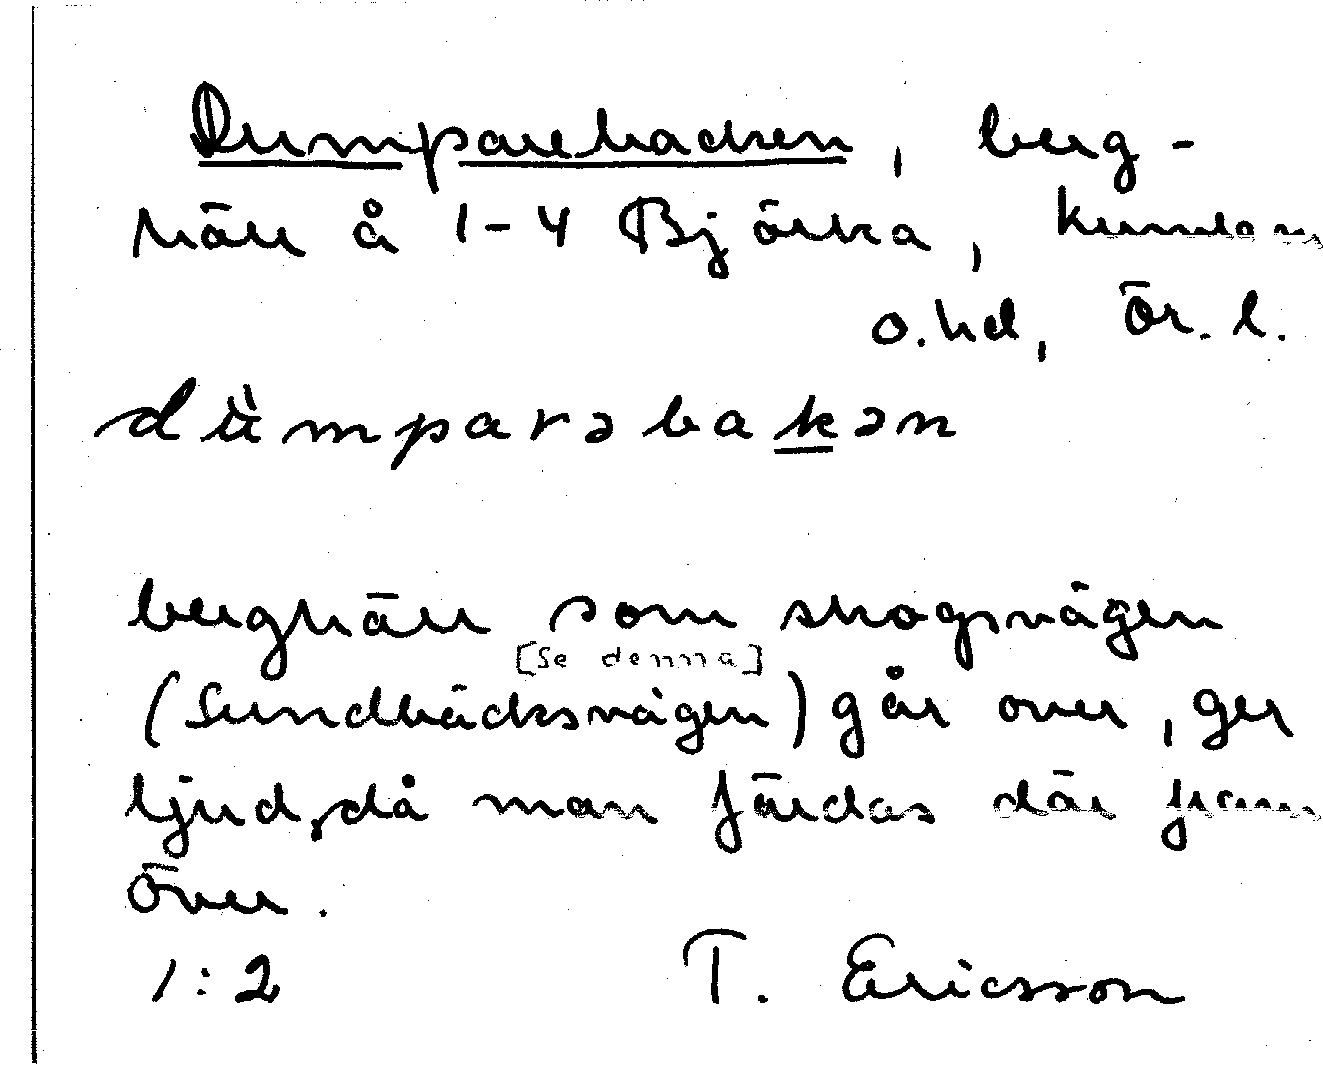 Dumparebacken, berg-
häll å 1-4 Björka, Kumlans
o. hd, Ör. l.
dümparəbakən
berghäll som skogsvägen
[Se denna]
(Sundbäcksvägen) går over, ger
ljud, då man färdas där fram
över.
1:2 T. Ericsson